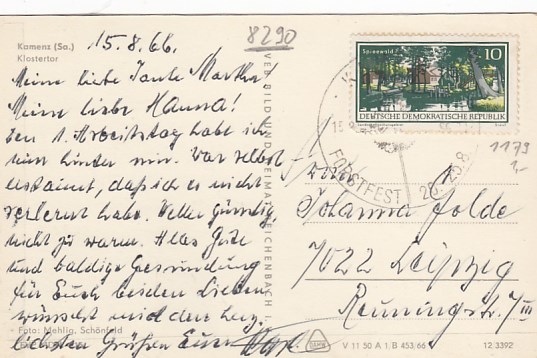 Kamenz (Sa.)
Klostertor
15.8.66.
8290
Meine liebe Tante Martha
Meine liebe Hanna!
Den 1. Arbeitstag habe ich
nun hinter mir. War selbst
erstaunt, daß ich es nicht
verlernt habe. Wetter günstig,
nicht zu warm. Alles Gute
und baldige Gesundung
für Euch beiden Lieben
wünscht und den herz-
lichsten Grüßen Euer
Foto: Mehlig, Schönfeld
VEB BILD UND HEIMAT REICHENBACH I.
Spreewald
10
DEUTSCHE DEMOKRATISCHE REPUBLIK
FORSTFEST 20.-25.8.
1179
1,-
Johanna Jolde
7022 Leipzig
7/III
V 11 50 A 1. B 453/66
12 3392